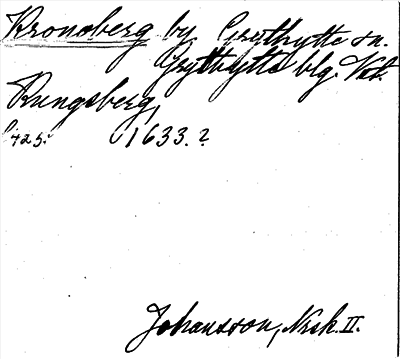 Kronoberg by Grythytte sn.
Grythytte blg. Vstl.
Rungsberg,
s. 425. 1633.?
Johansson, Nrsk. II.